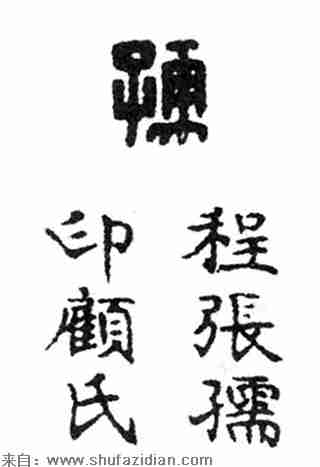 孺
程張孺
印顧氏
来自：www.shufazidian.com